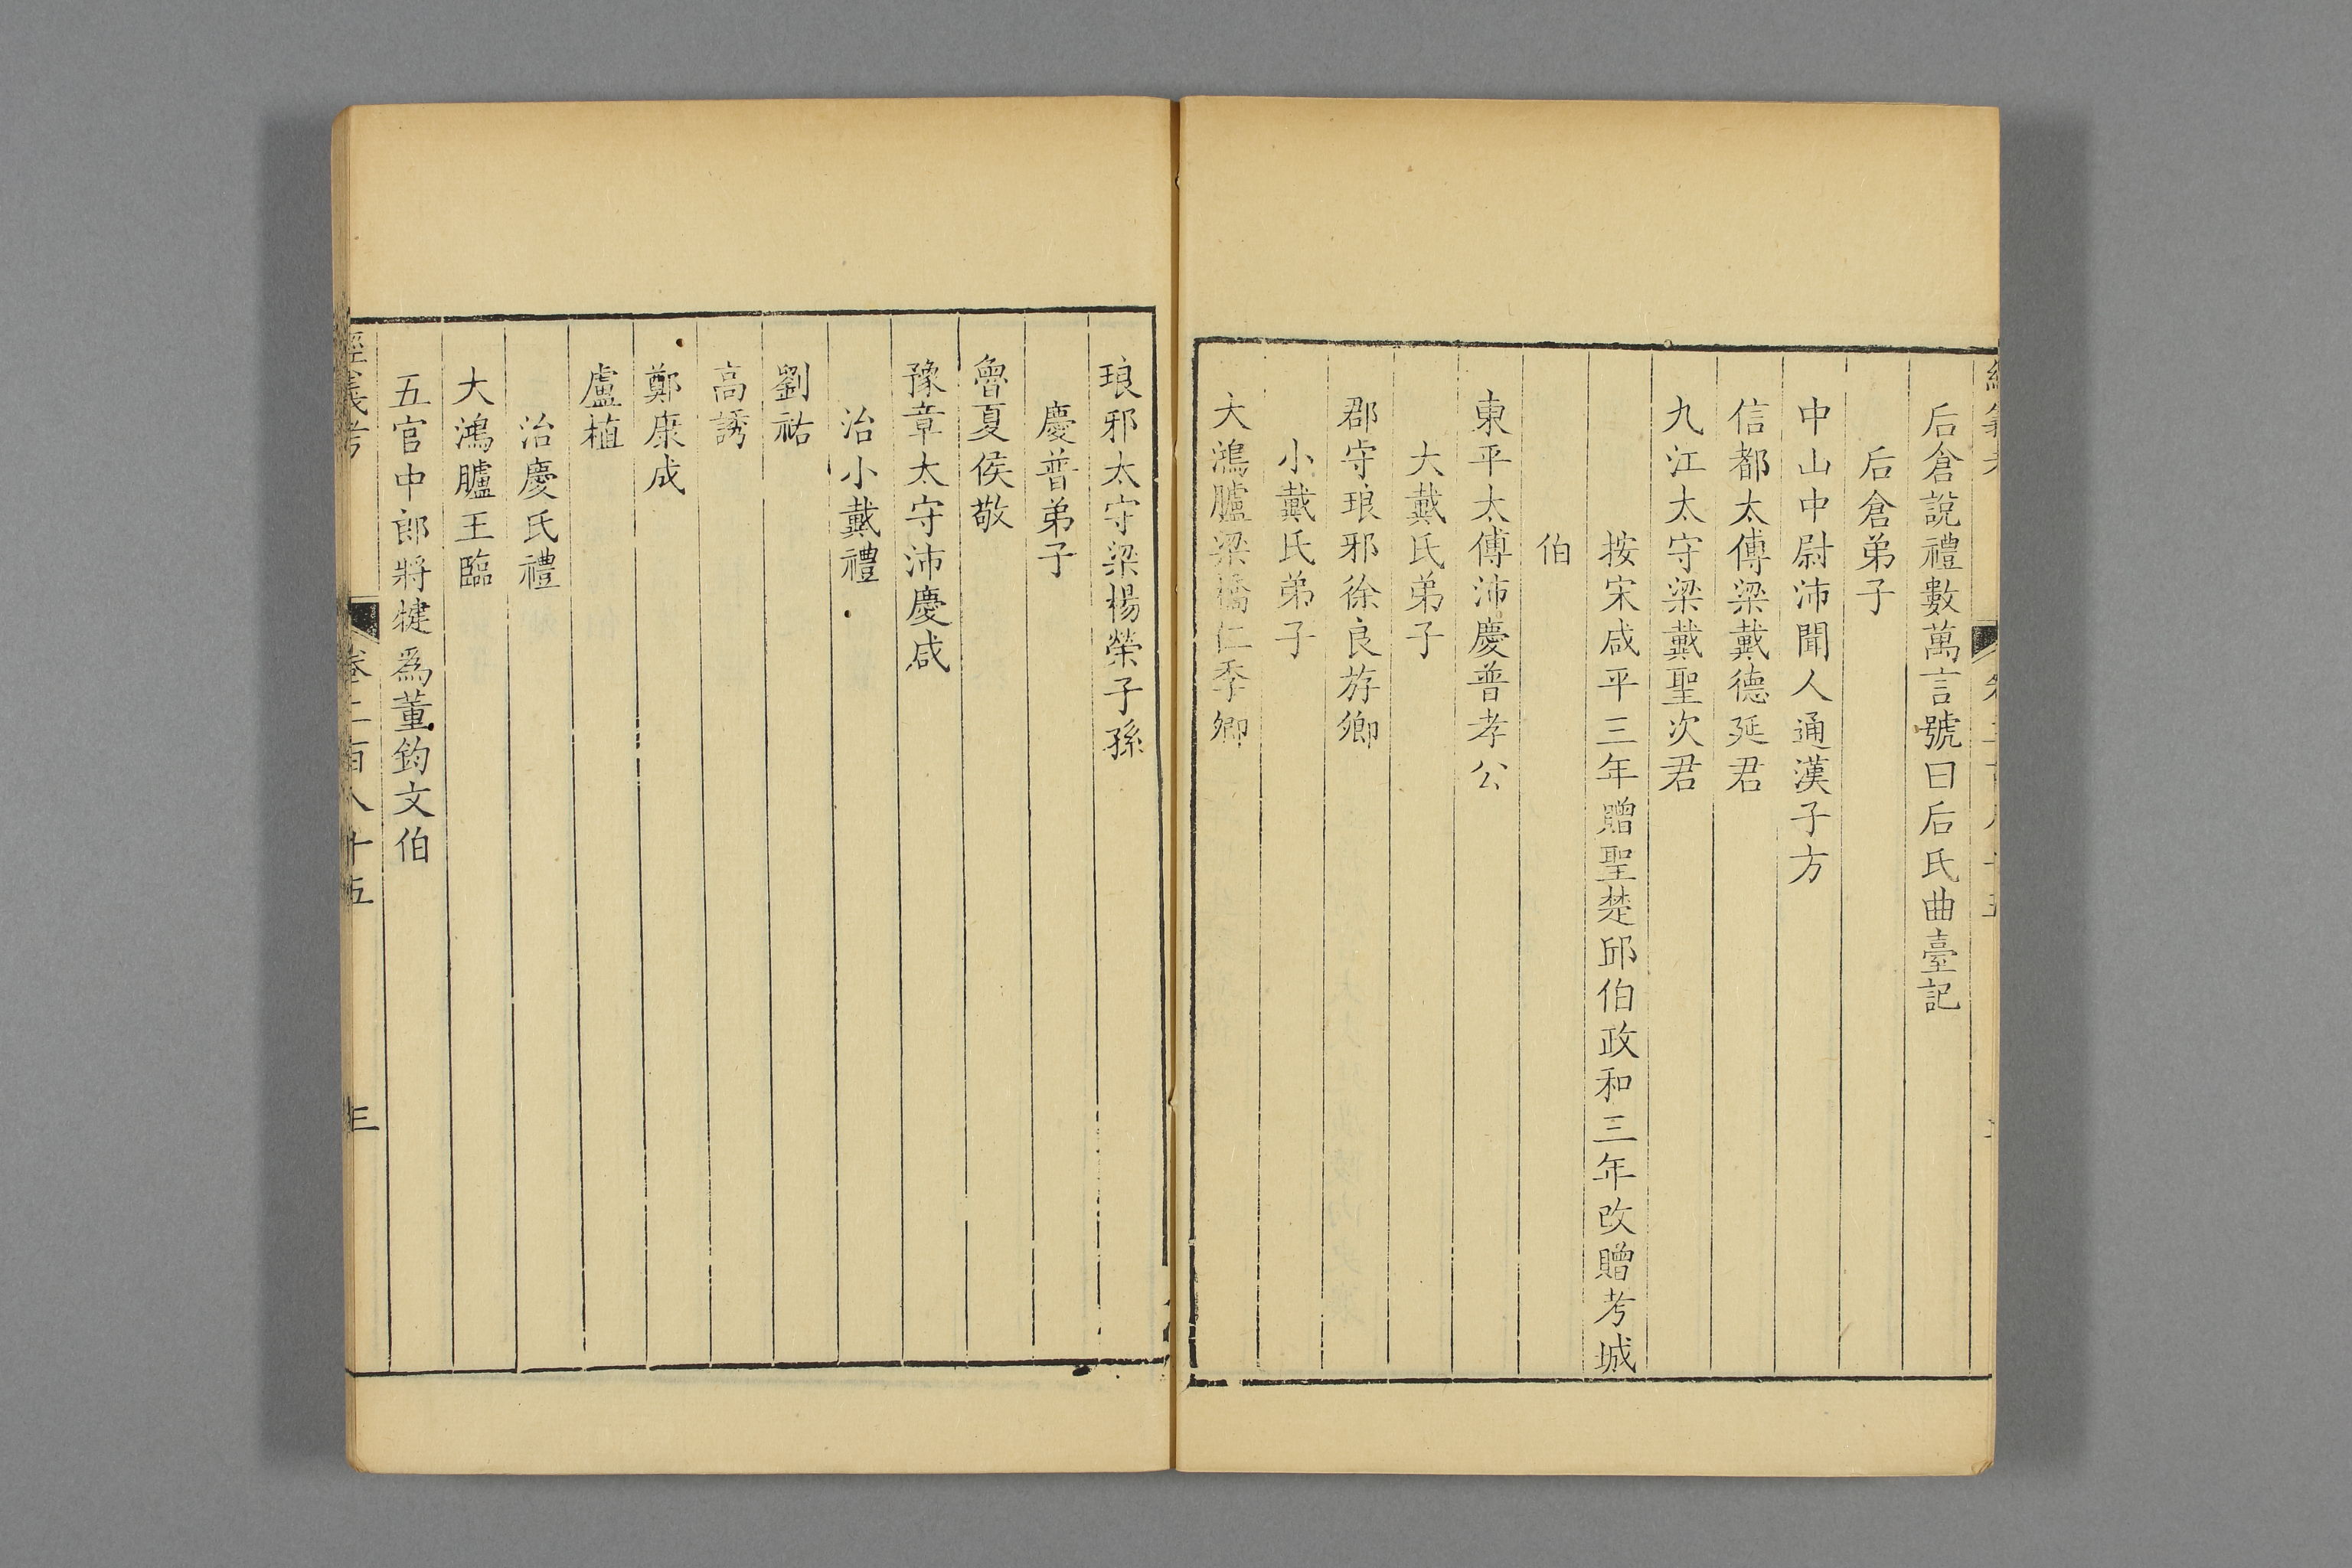 后倉說禮數萬言號曰后氏曲臺記
后倉弟子
中山中尉沛聞人通漢子方
信都太傅梁戴德延君
九江太守梁戴聖次君
按宋咸平三年贈聖楚邱伯政和三年改贈考城
伯
東平太傅沛慶普孝公
大戴氏弟子
郡守琅邪徐良斿卿
小戴氏弟子
大鴻臚梁橋仁季卿
琅邪太守梁楊榮子孫
慶普弟子
魯夏侯敬
豫章太守沛慶咸
治小戴禮
劉祐
高誘
鄭康成
盧植
治慶氏禮
大鴻臚王臨
五官中郎將犍為董鈞文伯
經義考 卷二百八十五 三